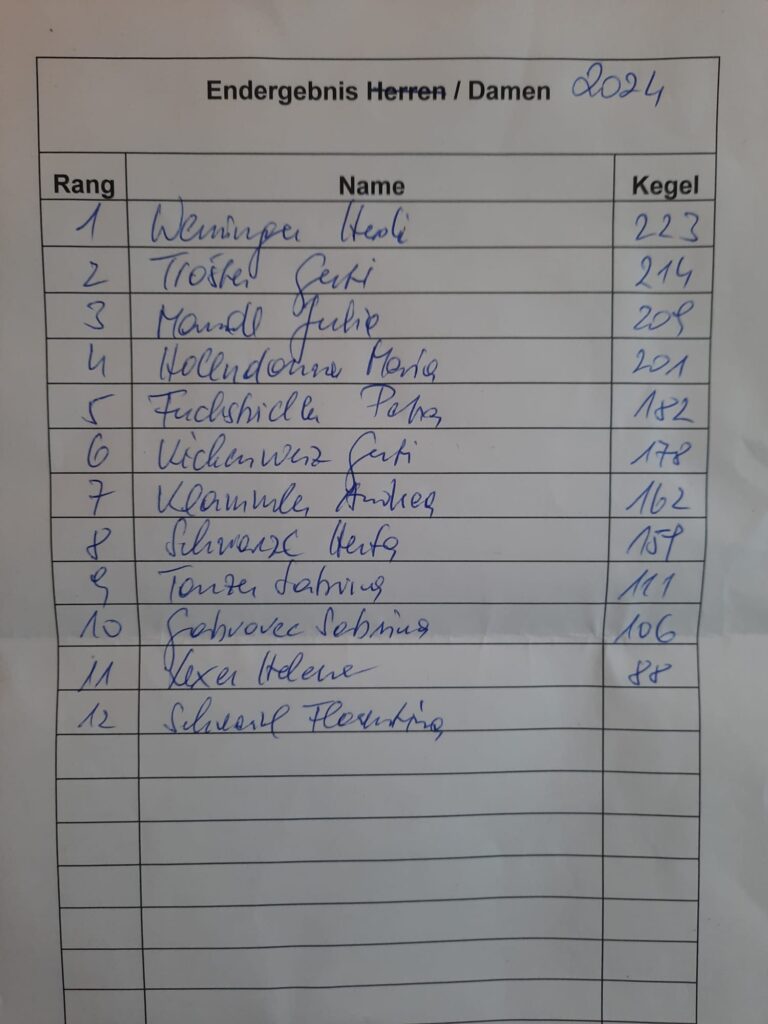 Endergebnis Herren / Damen 2024
Rang Name Kegel
1 Weninger 223
2 Tröster Gerti 214
3 Mandl Julia 209
4 Maria 201
5 Petra 182
6 Gerti 178
7 Klammler Andrea 162
8 Schwarzl Herta 159
9 Tanzer Sabrina 111
10 Gabrovec Sabrina 106
11 Helene 88
12 Schwarzl Florentina